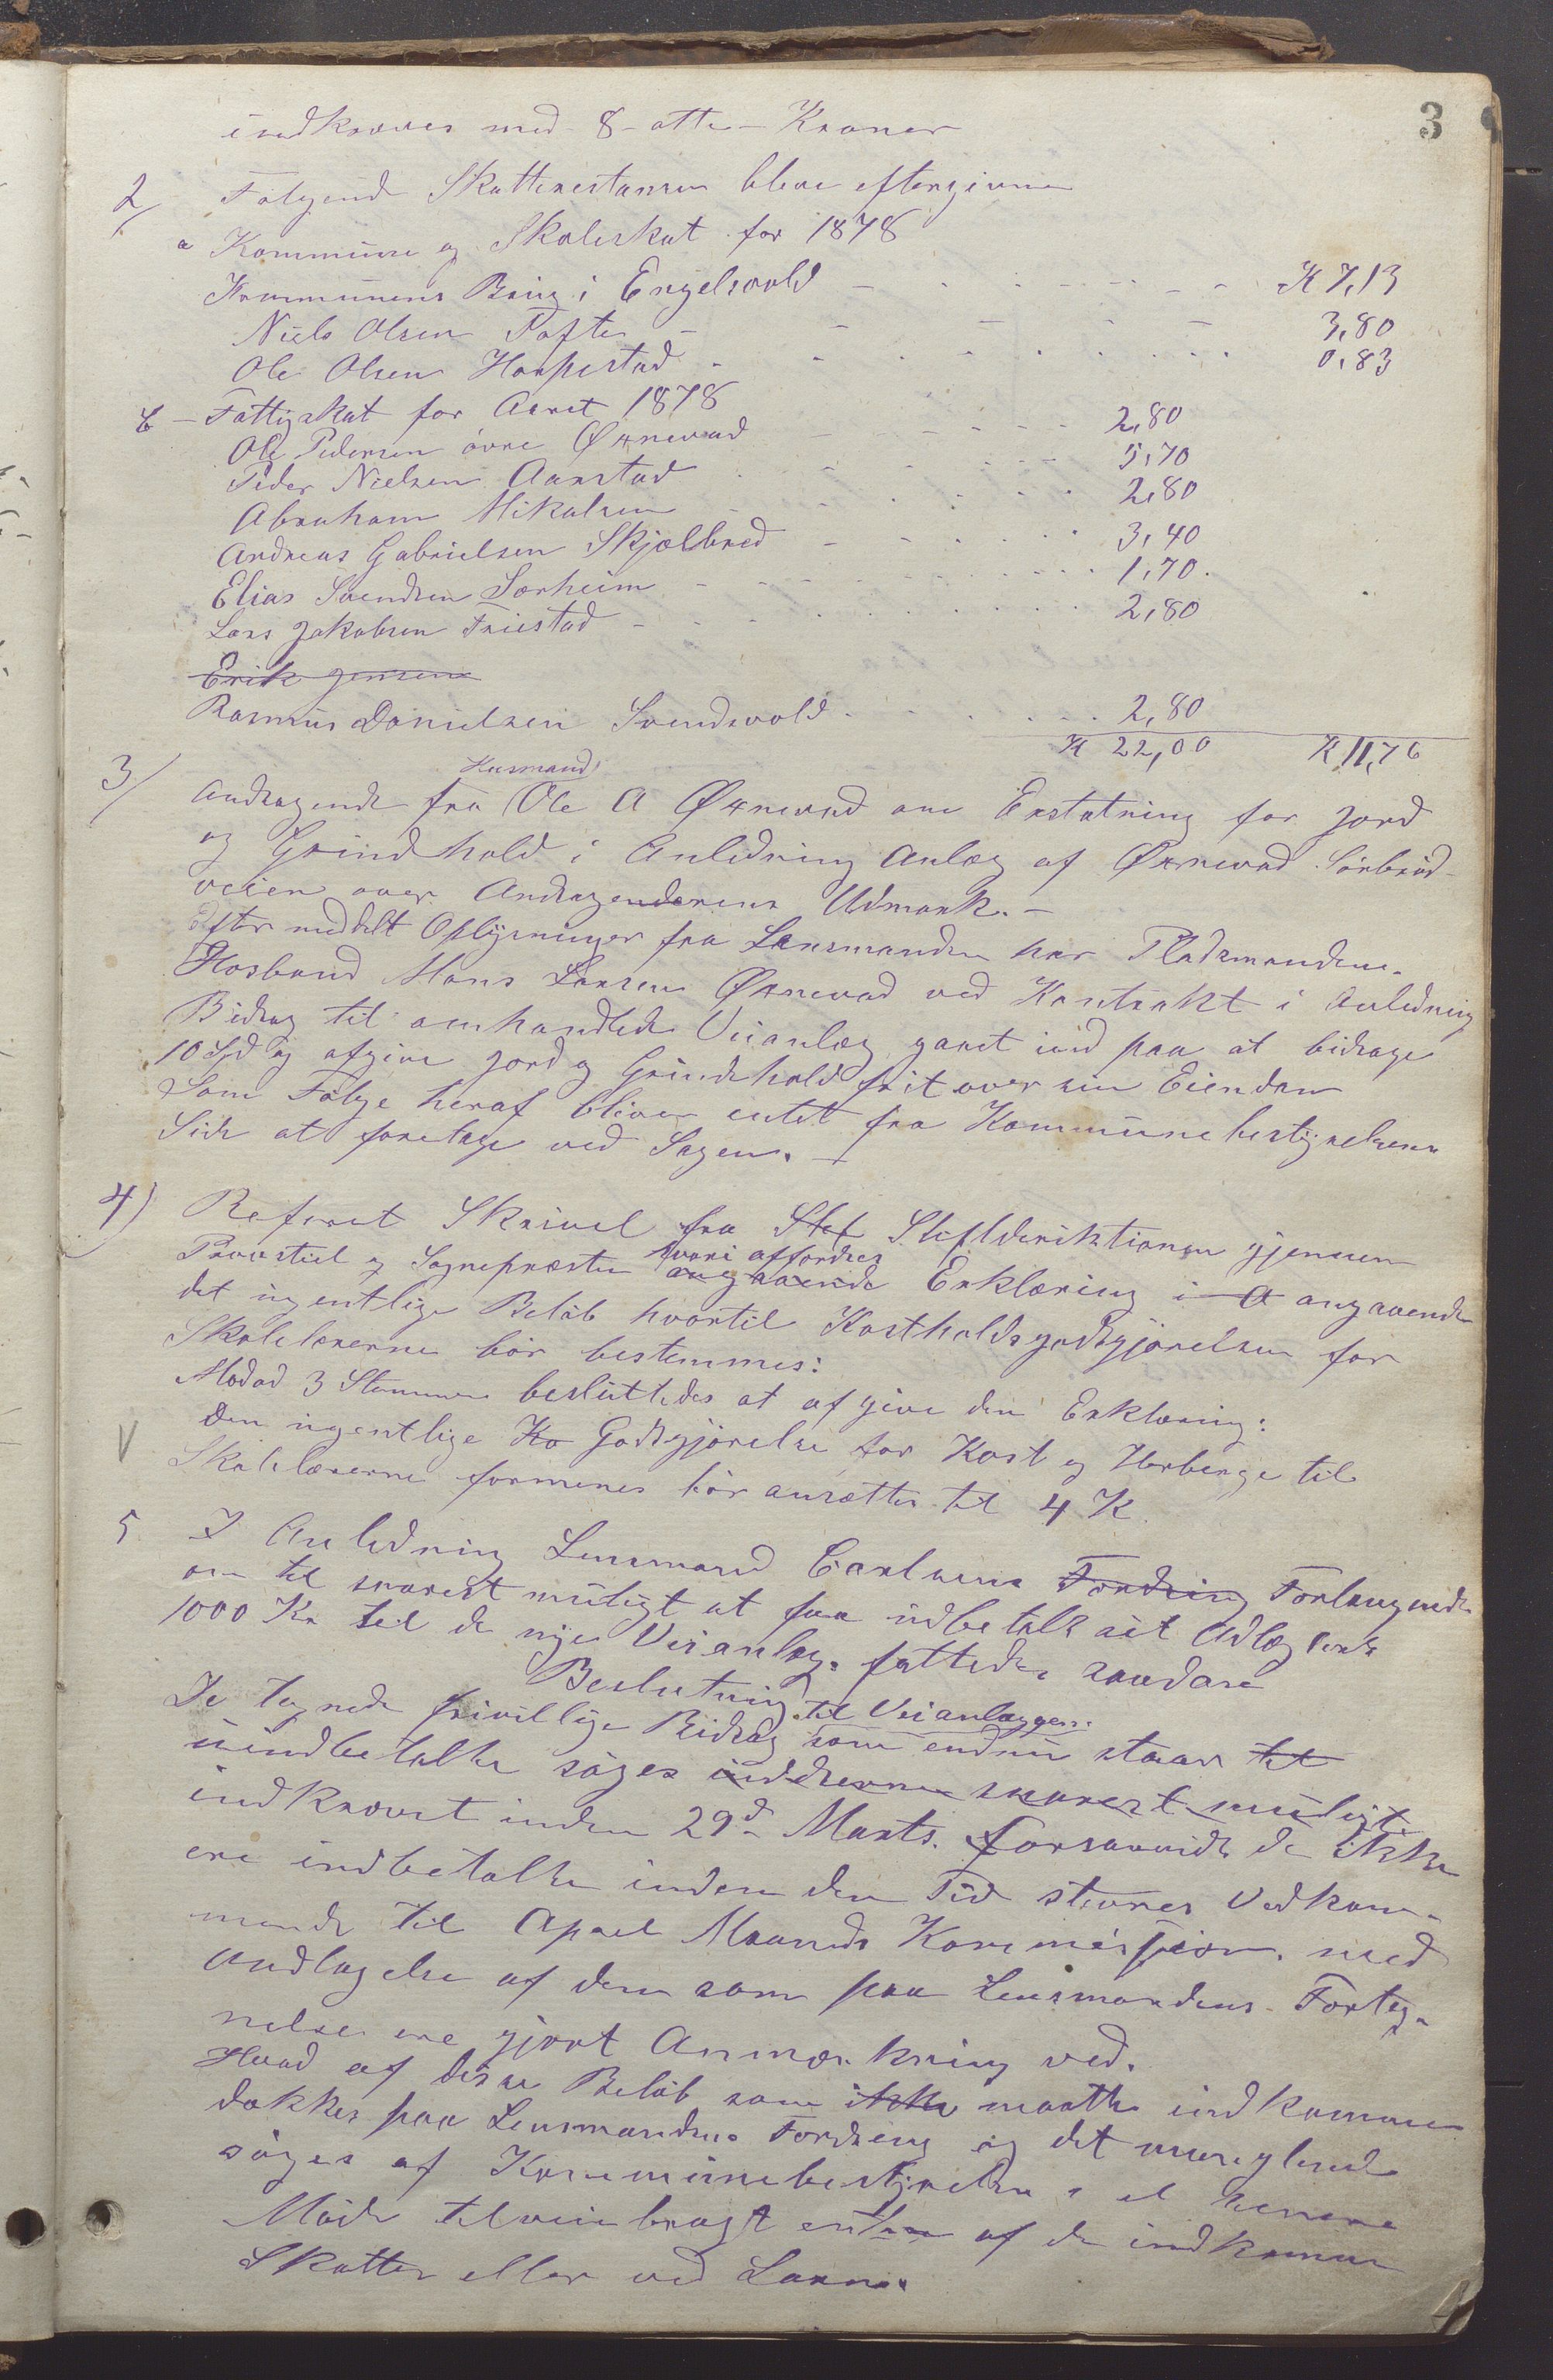 3
indkræves med - 8 - otte - Kroner
2/ Følgende Skatterestanser bleve eftergivne
a Kommune og Skoleskat for 1878
Kommunens Brug i Engelsvold - - - - - K 7,13
Niels Olsen Tofte - - - - - 3,80
Ole Olsen Harpestad - - - - - 0,83
b - Fattigskat for Aaret 1878
Ole Pedersen øvre Ørnevad - - - - - 2,80
Peder Nielsen Aarstad - - - - - 5,70
Abraham Mikalsen - - - - - 2,80
Andreas Gabrielsen Skjælbred - - - - - 3,40
Elias Svendsen Sørheim - - - - - 1,70.
Lars Jakobsen Friestad - - - - - 2,80
Erik Jensen
Rasmus Danielsen Svendsvold - - - - - 2,80
K 22,00 K 11,76
3/ Andragende fra Husmand Ole A Ørnevad om Erstatning for Jord
og Grindhold i Anledning Anlæg af Ørnevad Sørbrød-
veien over Andragenderens Udmark. -
Efter meddelt Oplysninger fra Lensmanden har Pladsmandens
Hosbond Mons Larsen Ørnevad ved Kontrakt i Anledning
Bidrag til omhandlede Veianlæg gaaet ind paa at bidrage
10 Spd og afgive Jord og Grindehold frit over sin Eiendom
Som Følge heraf bliver intet fra Kommunebestyrelsens
Side at foretage ved Sagen. -
4) Referet Skrivel fra Stef Stiftsderiktionen gjennem
Provstiet og Sognepræsten hvori affordres angaaende Erklæring i A angaaende
det ugentlige Beløb hvortil Kostholdsgodtgjørelsen for
Skolelærerne bør bestemmes:
Modad 3 Stemmer besluttedes at afgive den Erklæring:
V den ugentlige Ko Godtgjørelse for Kost og Herberge til
Skolelærerne formenes bør ansættes til 4 K.
5 I Anledning Lensmand Carlsens Fordring Forlangende
om til snarest muligt at faa udbetalt sit Udlæg
1000 Kr til de nye Veianlæg. fattedes saadan
Beslutning.
De tegnede frivillige Bidrag til Veianlæggene som endnu staar til
uindbetalte søges inddrevne snarest muligt
indkrævet inden 29d. Marts. forsaavidt de ikke
ere indbetalte inden den Tid stevnes Vedkom-
mende til April Maaneds Kommission. med
Undtagelse af dem som paa Lensmandens Forteg-
nelse ere gjort Anmærkning ved.
Hvad af disse Beløb som ikke maatte indkomme
dækkes paa Lensmandens Fordring og det manglende
søges af Kommunebestyrelsen i et senere
Møde tilveiebragt enten af de indkomne
Skatter eller ved Laan.